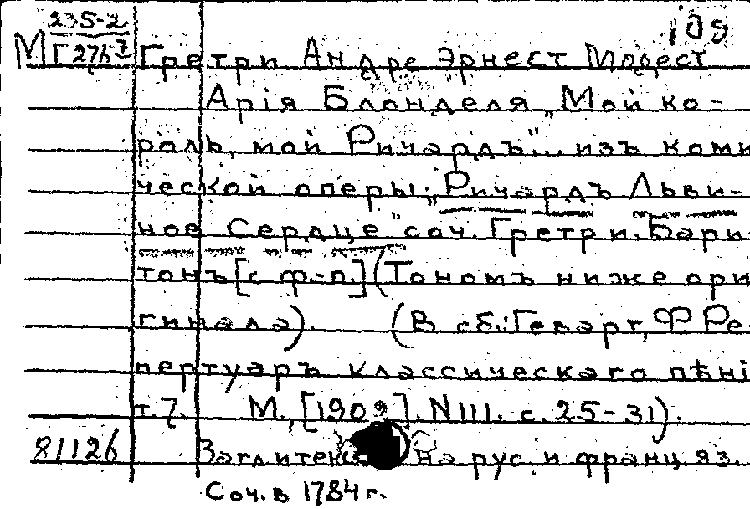 235-2
109
М Г276 Гретри Андре Эрнест Модест
Арія Блонделя „Мой ко-
роль, мой Ричардъ"... изъ коми
ческой оперы: „Ричардъ Льви-
ное Сердце" соч. Гретри. Бари
тонъ [с ф.-п] (Тономъ ниже ори
гинала). (В сб.: Геварт, Ф Ре
пертуаръ классическаго пѣні
т.7. М., [1909]. N III. с. 25-31).
81126 Загл и текс на рус. и франц. яз.
Соч. в 1784 г.